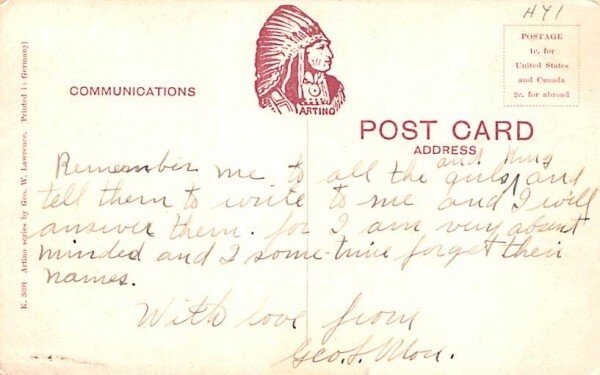 H41
POSTAGE
1c. for
United States
and Canada
2c. for abroad
ARTINO
COMMUNICATIONS
POST CARD
ADDRESS
K. 3091 Artino series by Geo. W. Lawrence. Printed in Germany
and
Remember me to all the girls, and
tell them to write to me and I will
answer them. for I am very absent
minded and I some-times forget their
names.
With love from
Geo. S.